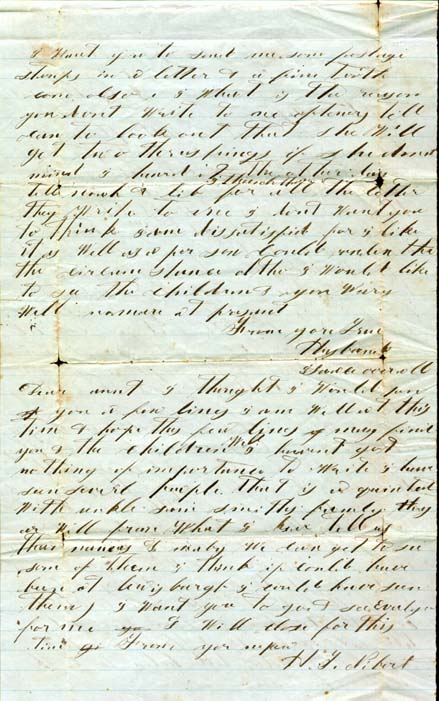 I Want you to send me som postage
stamps in a letter & a fine tooth
com also & What is the reason
you dont Write to me oftener tell
can to look out that she Will
get two thrashings if she dont
mind I heard of the other day
tell & Lib for all the letter
they Write to me I dont Want you
to think I am dissatisfid for I like
it as Well as a person Could under the
the circumstance altho I Would like
to see the Children & you Vary
Well no more at present
From your True
Husband
Dear aunt I thought I Would pen
you a few lines I am Well at this
time & hope this few lines may find
you & the children Well I havent got
nothing of importance to Write I have
seen severl people that is a quainted
With unkle Smiths family they
ar Well from What I have tell us
thar names & maby We can get to see
som of them I think if could have
been at lewisburgh I could have seen
them I Want you to
for me I Will close for this
time From your